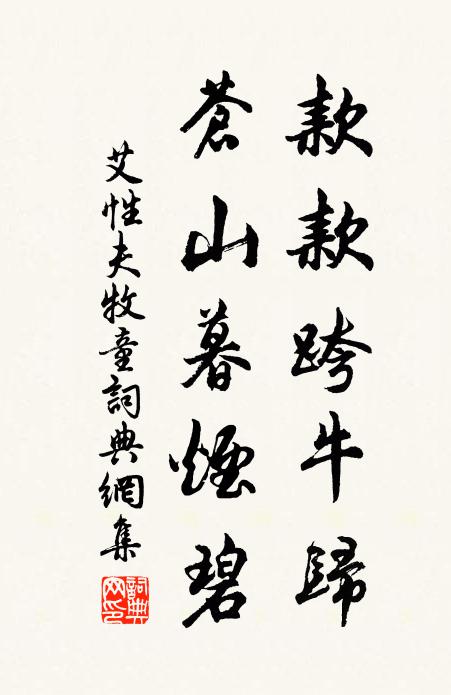 款款跨牛歸
蒼山暮煙碧
艾性夫牧童詞典網集
詞典網印